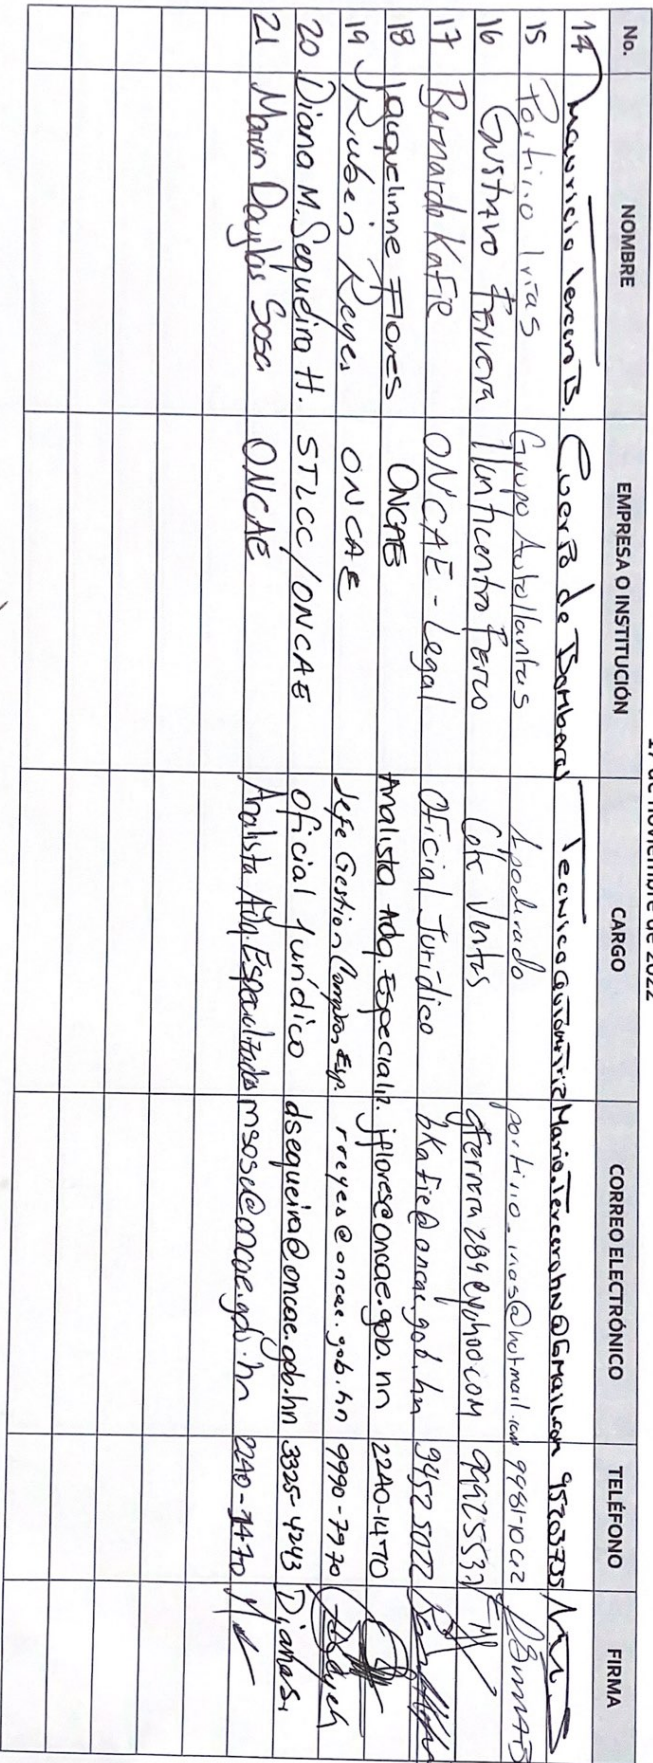 17 de noviembre de 2022
No. NOMBRE EMPRESA O INSTITUCIÓN CARGO CORREO ELECTRÓNICO TELÉFONO FIRMA
14 Mauricio Tercero B. Cuerpo de Bomberos Tecnico automotriz 95203735
15 Porfirio Irias Grupo Autollantas Apoderado 9981-1042
16 Gustavo Ferrera Llanticentro Ferco Ventas
17 Bernardo Kafie ONCAE - Legal Oficial Jurídico bkafie@oncae.gob.hn 94525022
18 Jacquelinne Flores ONCAE Analista Adq. Especializ. jflores@oncae.gob.hn 2240-1470
19 Ruben Reyes ONCAE Jefe Gestion Compras Esp. rreyes@oncae.gob.hn 9990-7970
20 Diana M. Sequeira H. STLCC/ONCAE oficial jurídico dsequeira@oncae.gob.hn 3325-4243 Diana S.
21 Marvin Douglas Sosa ONCAE Analista Adq. Especializadas msosa@oncae.gob.hn 2240-1470